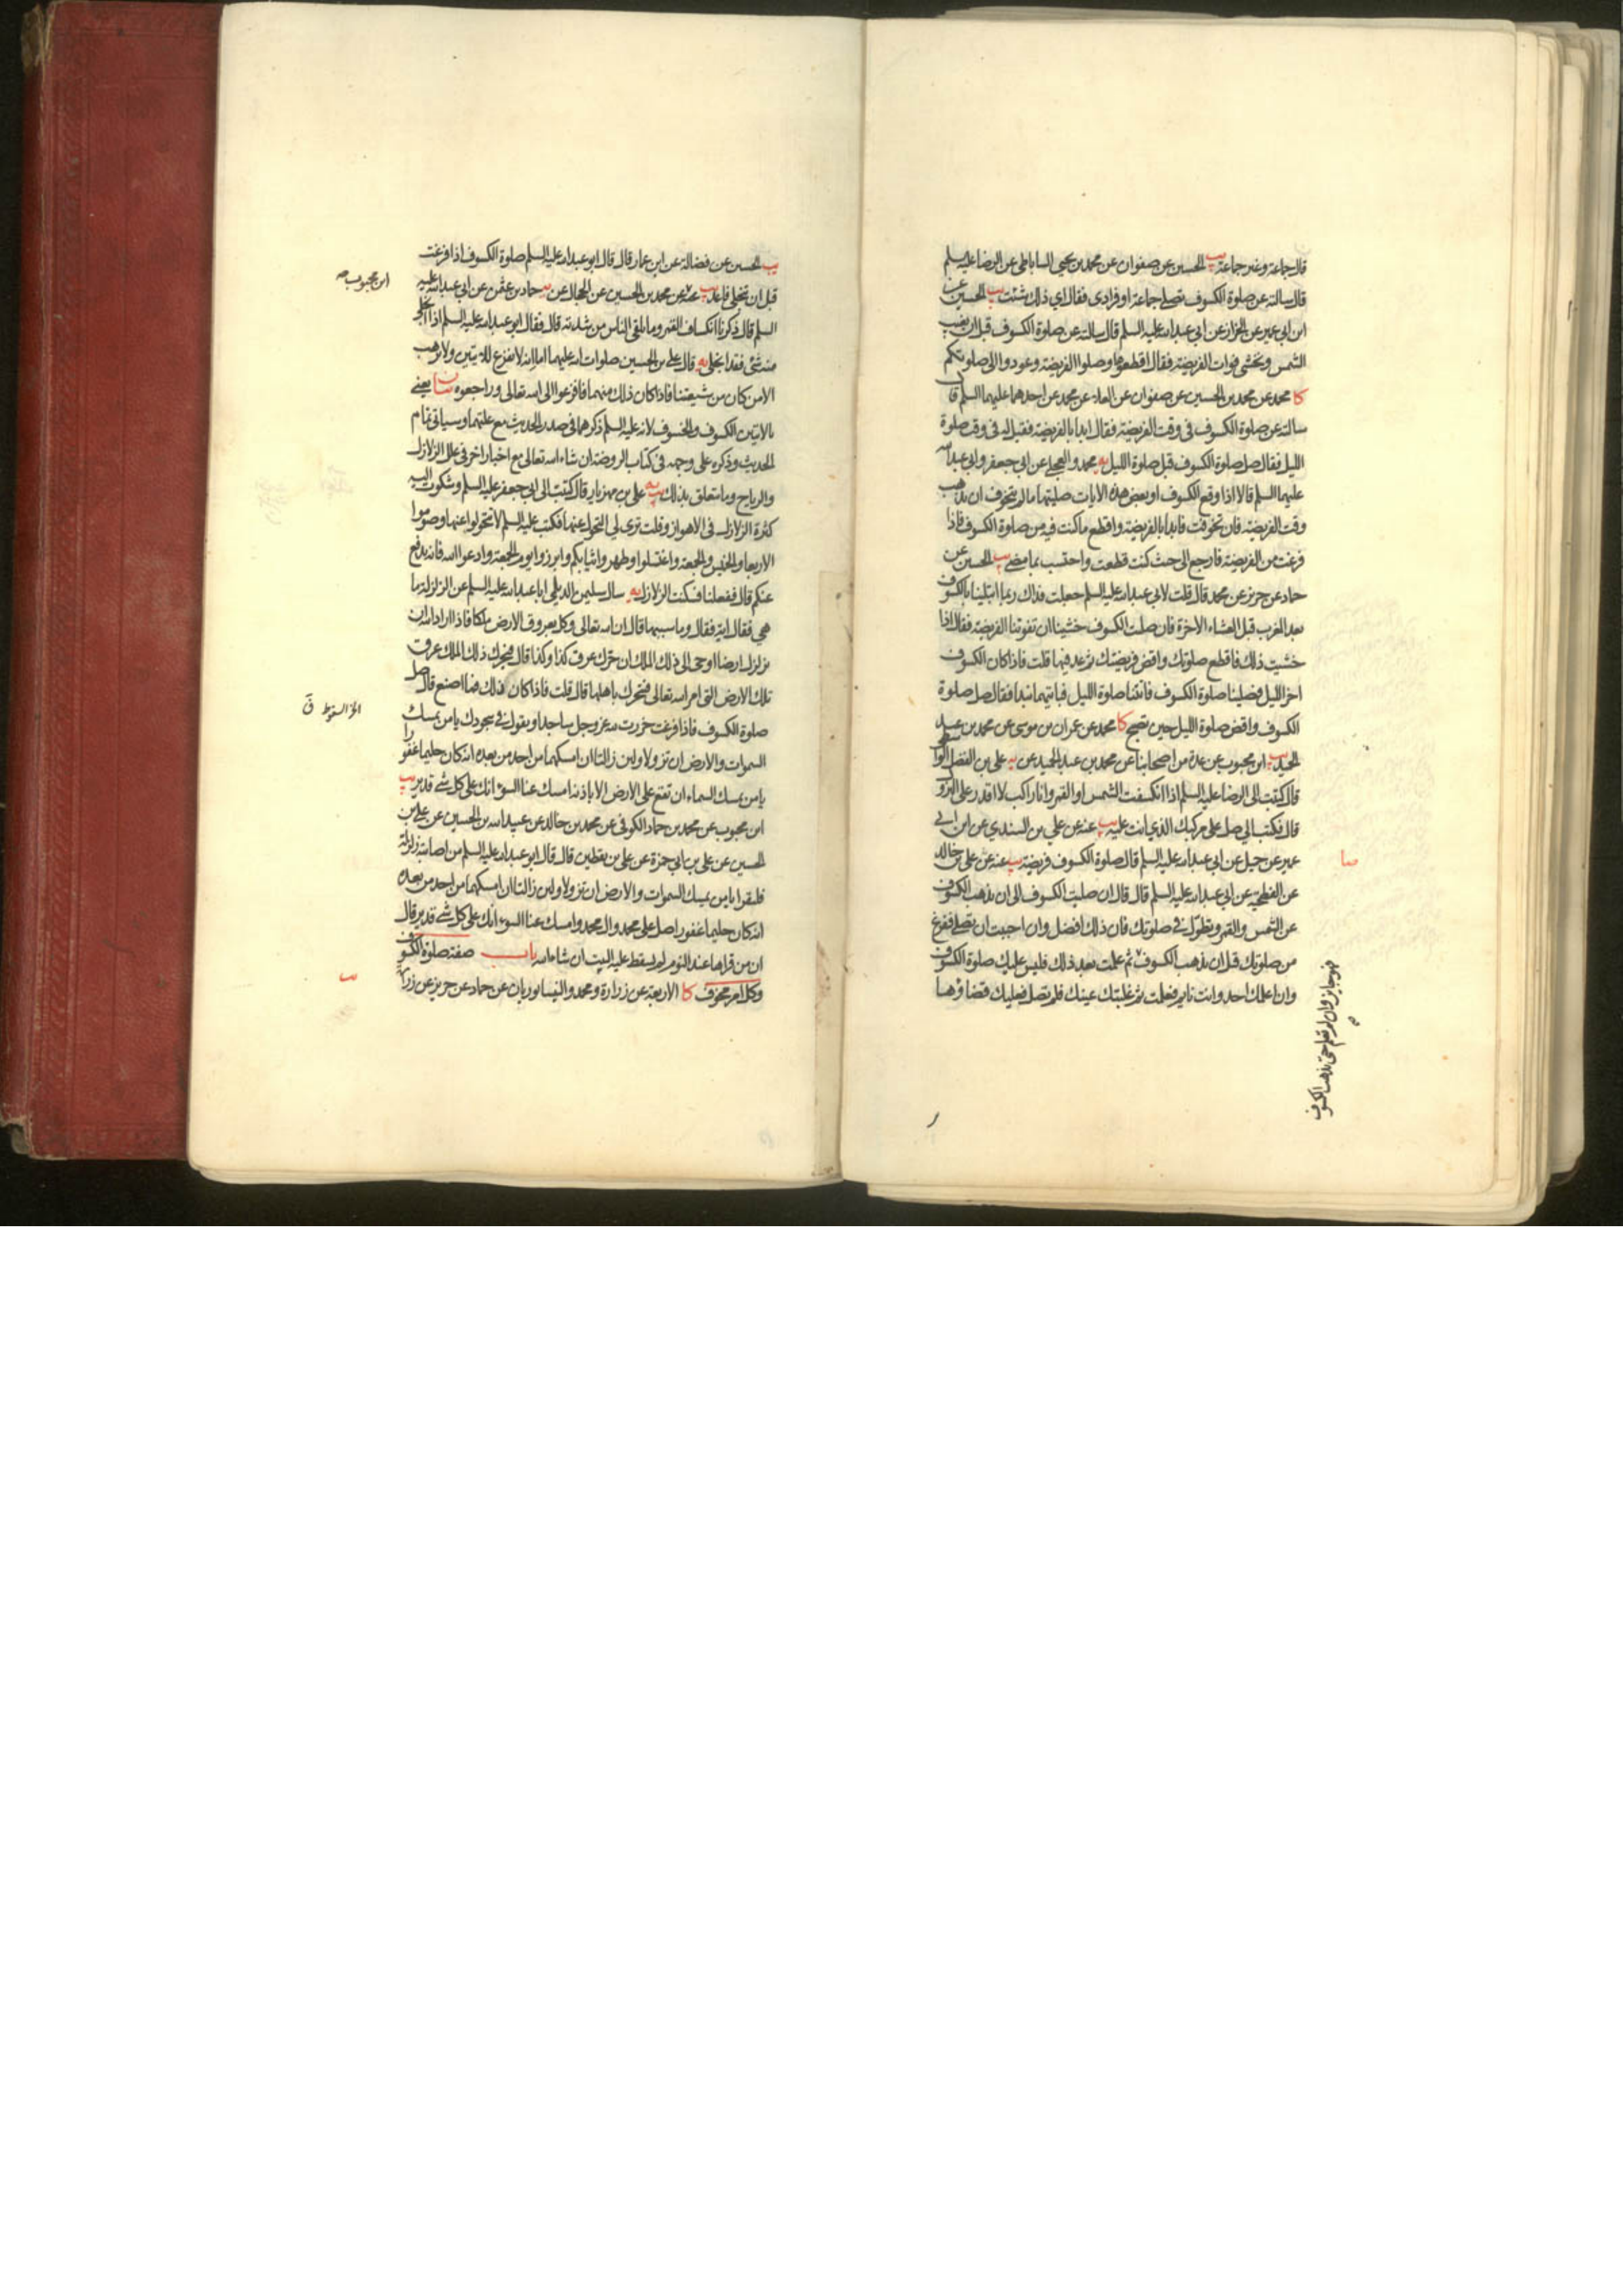 قال جماعة وغير جماعة يب الحسين عن صفوان عن محمد بن يحيى الساباطي عن الرضا عليه السلم
قال سالته عن صلوة الكسوف تصلى جماعة او فرادى فقال اي ذلك شئت يب الحسين عن
ابن ابي عمير عن الخزاز عن ابي عبد الله عليه السلم قال سالته عن صلوة الكسوف قبل ان تغيب
الشمس وتخشى فوات الفريضة فقال اقطعوها وصلوا الفريضة وعودوا الى صلوتكم
كا محمد عن محمد بن الحسين عن صفوان عن العلاء عن محمد عن احدهما عليهما السلم قال
سالته عن صلوة الكسوف في وقت الفريضة فقال ابدا بالفريضة فقيل له في وقت صلوة
الليل فقال صل صلوة الكسوف قبل صلوة الليل يه محمد والعجلي عن ابي جعفر وابي عبد الله
عليهما السلم قالا اذا وقع الكسوف او بعض هذه الايات صليتها ما لم تتخوف ان يذهب
وقت الفريضة فان تخوفت فابدا بالفريضة واقطع ما كنت فيه من صلوة الكسوف فاذا
فرغت من الفريضة فارجع الى حيث كنت قطعت واحتسب بما مضى يب الحسين عن
حماد عن حريز عن محمد قال قلت لابي عبد الله عليه السلم جعلت فداك ربما ابتلينا بالكسوف
بعد المغرب قبل العشاء الاخرة فان صليت الكسوف خشينا ان تفوتنا الفريضة فقال اذا
خشيت ذلك فاقطع صلوتك واقض فريضتك ثم عد فيها قلت فاذا كان الكسوف
اخر الليل فصلينا صلوة الكسوف فاتتنا صلوة الليل فبايتهما نبدا فقال صل صلوة
الكسوف واقض صلوة الليل حين تصبح كا محمد عن عمران بن موسى عن محمد بن عبد
الحميد يب ابن محبوب عن عدة من اصحابنا عن محمد بن عبد الحميد عن يه علي بن الفضل الواسطي
قال كتبت الى الرضا عليه السلم اذا انكسفت الشمس او القمر وانا راكب لا اقدر على النزول
قال فكتب الي صل على مركبك الذي انت عليه يب عنه عن علي بن السندي عن ابن ابي
عمير عن جميل عن ابي عبد الله عليه السلم قال صلوة الكسوف فريضة يب عنه عن علي بن خالد
عن الفطحية عن ابي عبد الله عليه السلم قال قال ان صليت الكسوف الى ان يذهب الكسوف
عن الشمس والقمر وتطول في صلوتك فان ذلك افضل وان احببت ان تصلي فتفرغ
من صلوتك قبل ان يذهب الكسوف ثم علمت بعد ذلك فليس عليك صلوة الكسوف
وان اعلمك احد وانت نايم فعلمت ثم غلبتك عينك فلم تصل فعليك قضاؤها
فهو جايز وان لم تعلم حتى يذهب الكسوف
يب الحسين عن فضالة عن ابن عمار قال قال ابو عبد الله عليه السلم صلوة الكسوف اذا فرغت
قبل ان تنجلي فاعد يب عنه عن محمد بن الحسين عن الحجال عن يه حماد بن عثمن عن ابي عبد الله عليه
ابن محبوب
السلم قال ذكرنا انكساف القمر وما يلقى الناس من شدته قال فقال ابو عبد الله عليه السلم اذا انجلى
منه شئ فقد انجلى يه قال علي بن الحسين صلوات الله عليهما اما انه لا يفزع للايتين ولا يرهب
الا من كان من شيعتنا فاذا كان ذلك منهما فافزعوا الى الله تعالى وراجعوه بيان يعني
بالايتين الكسوف والخسوف لانه عليه السلم ذكرهما في صدر الحديث مع علتهما وسياتي تمام
الحديث وذكره على وجهه في كتاب الروضة ان شاء الله تعالى مع اخبار اخر في علل الزلازل
والرياح وما يتعلق بذلك يب يه علي بن مهزيار قال كتبت الى ابي جعفر عليه السلم وشكوت اليه
كثرة الزلازل في الاهواز وقلت ترى لي التحول عنها فكتب عليه السلم لا تتحولوا عنها وصوموا
الاربعا والخميس والجمعة واغتسلوا وطهروا ثيابكم وابرزوا يوم الجمعة وادعوا الله فانه يدفع
عنكم قال ففعلنا فسكنت الزلازل يه سال سليمن الديلمي ابا عبد الله عليه السلم عن الزلزلة ما
هي فقال اية فقال وما سببها قال ان الله تعالى وكل بعروق الارض ملكا فاذا اراد الله ان
يزلزل ارضا اوحى الى ذلك الملك ان حرك عرق كذا وكذا قال فيحرك ذلك الملك عرق
تلك الارض التي امر الله تعالى فتحرك باهلها قال قلت فاذا كان ذلك فما اصنع قال صل
صلوة الكسوف فاذا فرغت خررت لله عز وجل ساجدا وتقول في سجودك يا من يمسك
السموات والارض ان تزولا ولين زالتا ان امسكهما من احد من بعده انه كان حليما غفورا
يا من يمسك السماء ان تقع على الارض الا باذنه امسك عنا السوء انك على كل شئ قدير يب
ابن محبوب عن محمد بن حماد الكوفي عن محمد بن خالد عن عبيد الله بن الحسين عن علي بن
الحسين عن علي بن ابي حمزة عن علي بن يقطين قال قال ابو عبد الله عليه السلم من اصابته زلزلة
فليقرا يا من يمسك السموات والارض ان تزولا ولين زالتا ان امسكهما من احد من بعده
انه كان حليما غفورا صل على محمد وال محمد وامسك عنا السوء انك على كل شئ قدير قال
ان من قراها عند النوم لم يسقط عليه البيت ان شاء الله باب صفة صلوة الكسوف
وكل امر مخوف كا الاربعة عن زرارة ومحمد والنيسابوريان عن حماد عن حريز عن زرارة